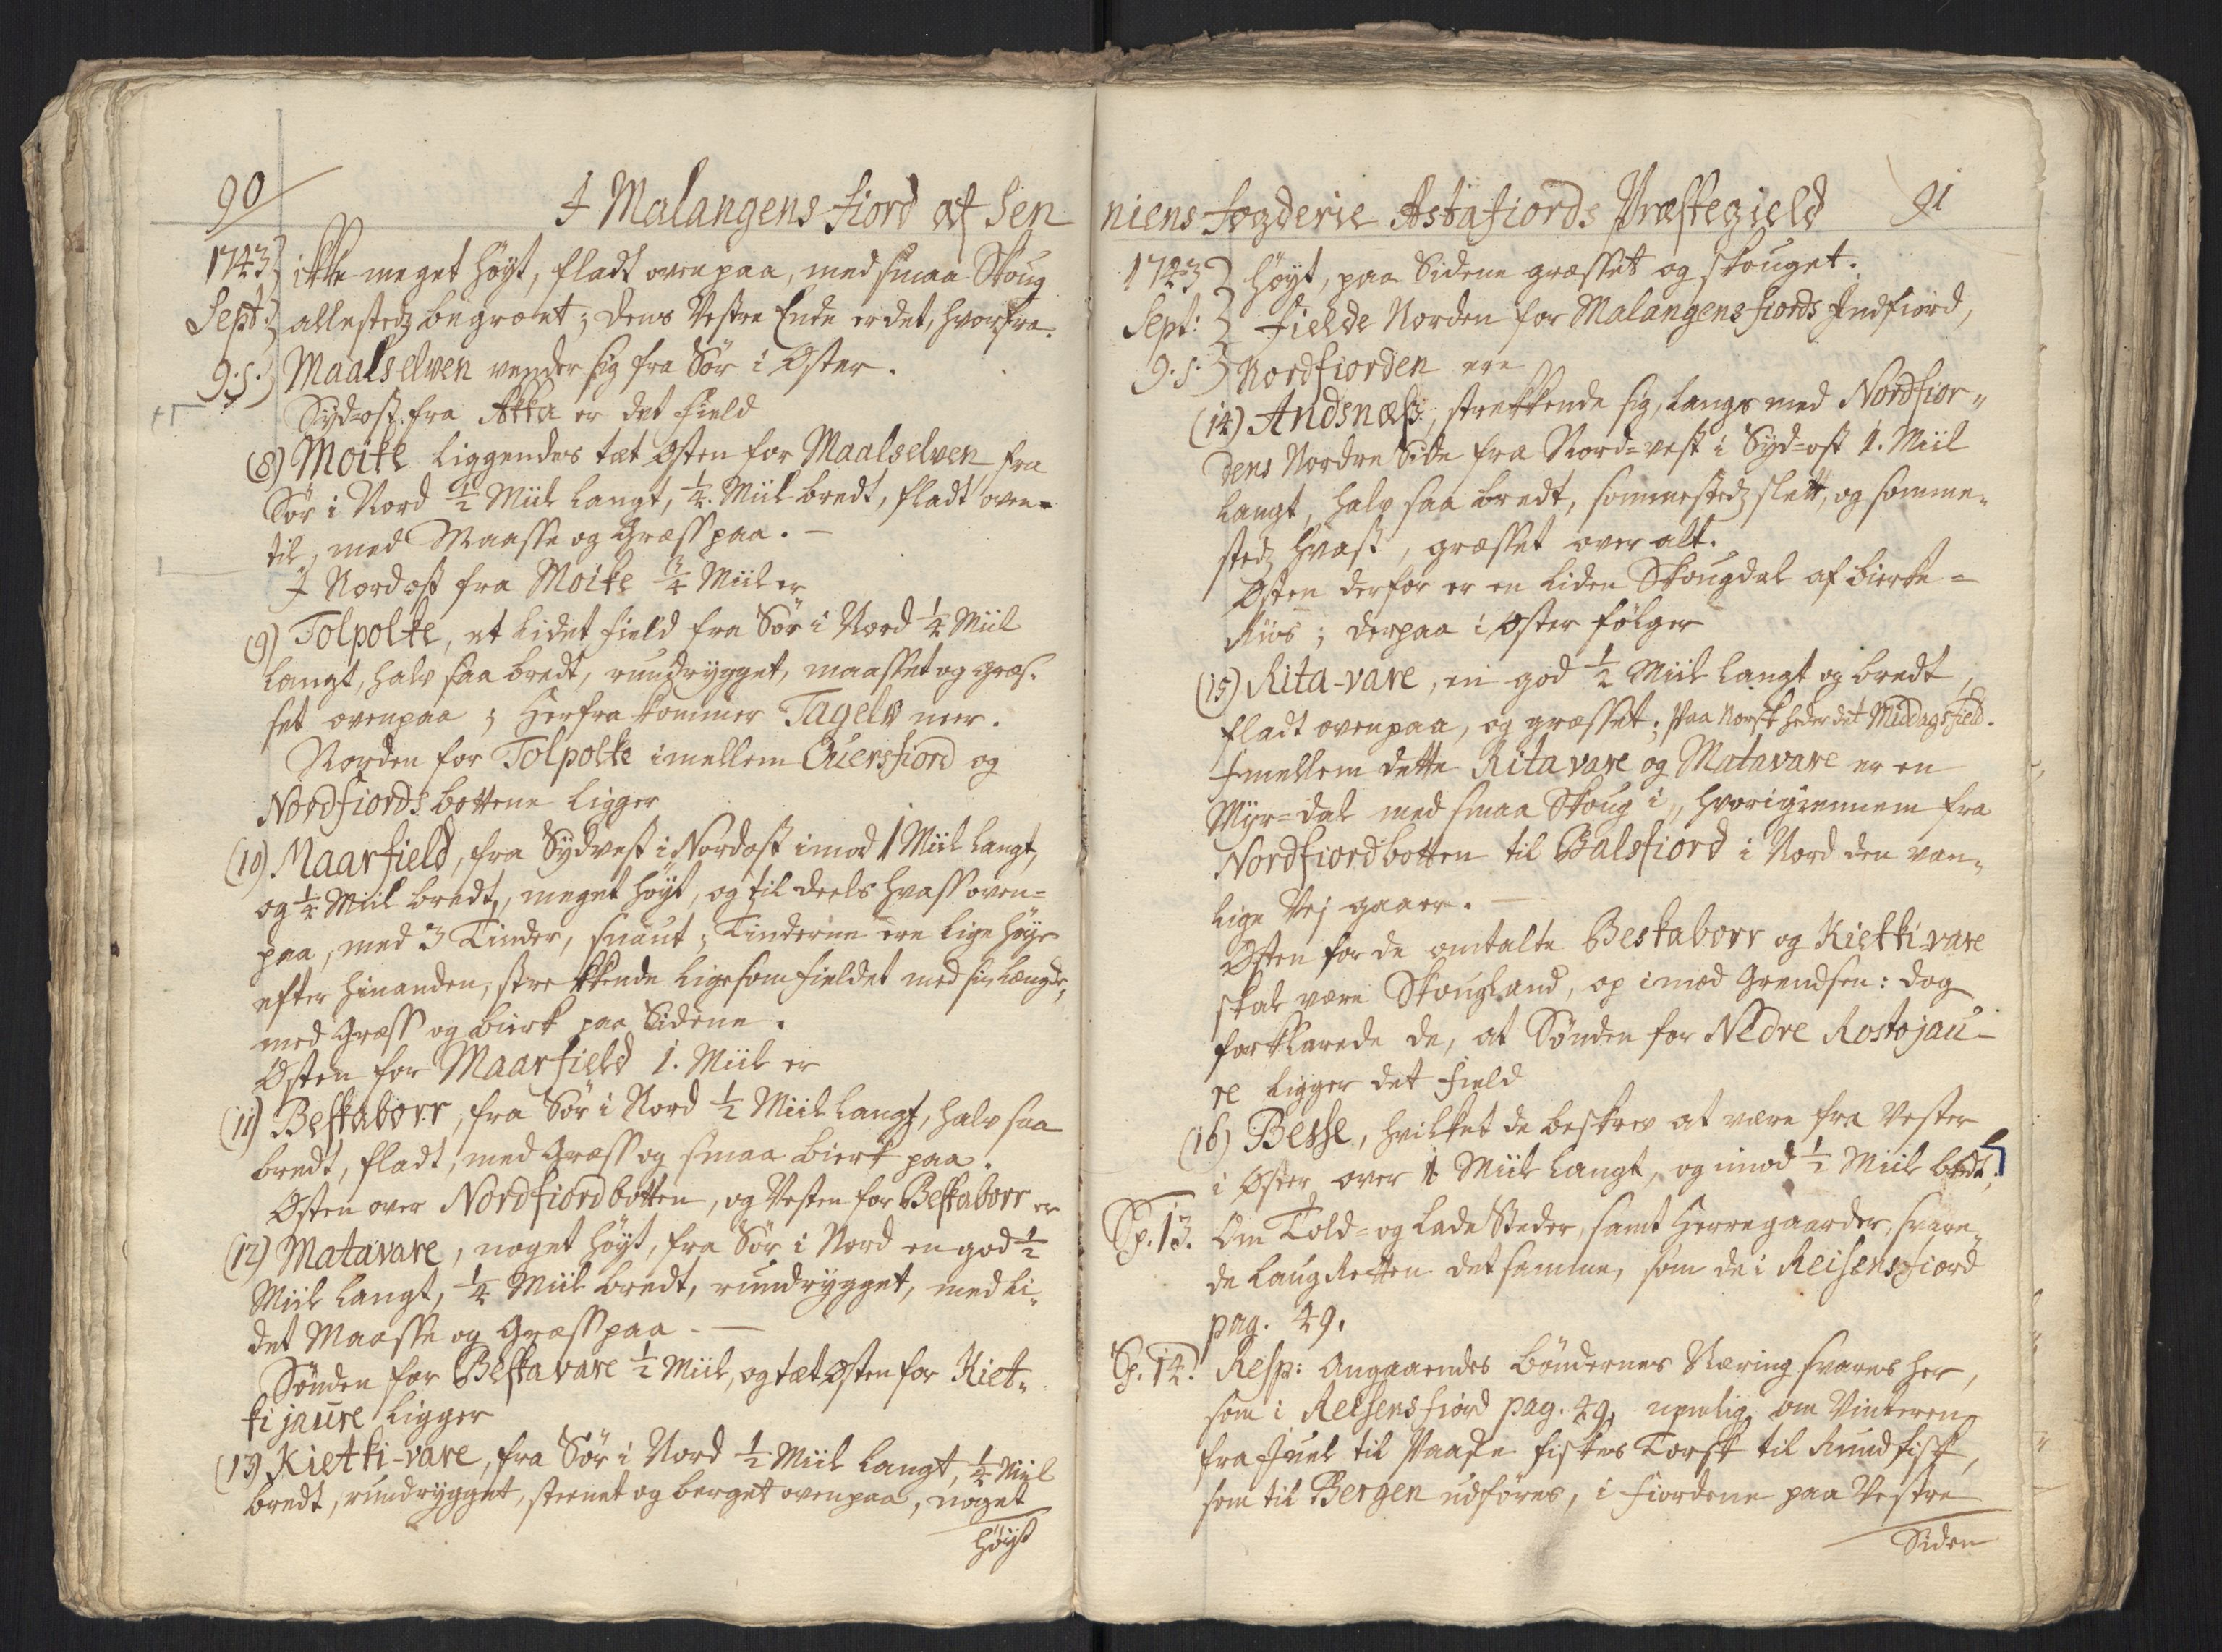 90
I Malangens Fiord af Sen
1743 ikke meget høyt, fladt oven paa, med smaa Skoug
Sept: allestedz begroet; Dens Vestre Ende er det, hvorfra
9.s. Maalselven vender sig fra Sør i Øster.
Syd-ost fra Akka er det Field
(8) Moike liggendes tæt Østen for Maalselven fra
Sør i Nord ½ Miil langt, ¼ Miil bredt, fladt oven-
til, med Maasse og Græss paa. —
I Nordost fra Moike ¾ Miil er
(9) Tolpolke, et lidet Field fra Sør i Nord ¼ Miil
langt, halv saa bredt, rundrygget, maasset og græs-
set ovenpaa; Herfra kommer Tagelv neer.
Norden for Tolpolke imellem Qversfiord og
Nordfiordsbottene ligger
(10) Maarfield, fra Sydvest i Nordost imod 1 Miil langt,
og ¼ Miil bredt, meget høyt, og til deels hvass oven-
paa, med 3 Tinder, snaut; Tinderne ere lige høye
efter hinanden, strekkende ligesom Fieldet med sin længde,
med Græss og Bierk paa Sidene.
Østen for Maarfield 1. Miil er
(11) Beskaborr, fra Sør i Nord ½ Miil langt, halv saa
bredt, fladt, med Græss og smaa Bierk paa.
Østen over Nordfiordbotten, og Vesten for Beskaborr er
(12) Matavare, noget høyt, fra Sør i Nord en god ½
Miil langt, ¼ Miil bredt, rundrygget, med li-
det Maasse og Græss paa. —
Sønden for Beskavare ½ Miil, og tæt Østen for Kiet-
ki jaure ligger
(13) Kietki-vare, fra Sør i Nord ½ Miil langt, ¼ Miil
bredt, rundrygget, steenet og berget ovenpaa, noget
høyt
niens Fogderie Astafiords Præstegield 91
1743 høyt, paa Sidene græsset og skouget.
Sept: Fielde Norden for Malangens Fiords Indfiord,
9.s. Nordfiorden ere
(14) Andsnæss, strekkende sig, langs med Nordfior-
dens Nordre Side fra Nord-vest i Syd-ost 1. Miil
langt, halv saa bredt, sommestedz slett, og somme-
stedz hvast, græsset over alt.
Østen derfor er en liden Skougdal af Bierke-
Riis; derpaa i Øster følger
(15) Rita-vare, en god ½ Miil langt og bredt,
fladt ovenpaa, og græsset; Paa Norsk heder det Middagsfield.
Imellem dette Rita vare og Matavare er en
Myr-dal med smaa Skoug i, hvorigiennem fra
Nordfiordbotten til Balsfiord i Nord den van-
lige Vej gaaer. —
Østen for de omtalte Beskaborr og Kietki vare
skal være Skougland, op imod Grendsen: dog
forklarede de, at Sønden for Nedre Rostojau-
re ligger det Field
(16) Besse, hvilket de beskrev at være fra Vester
i Øster over 1 Miil langt, og imod ½ Miil bredt;
Sp. 13. Om Told- og Lade Steder, samt Herregaarder, svare-
de LaugRetten det samme, som de i Reisensfiord
pag. 49.
Sp. 14. Resp: Angaaendes Bøndernes Næring svares her,
som i Reisensfiord pag. 49, nemlig om Vinteren
fra Juel til Paaske fiskes Torsk til Rundfisk,
som til Bergen udføres, i Fiordene paa Vestre
Siden